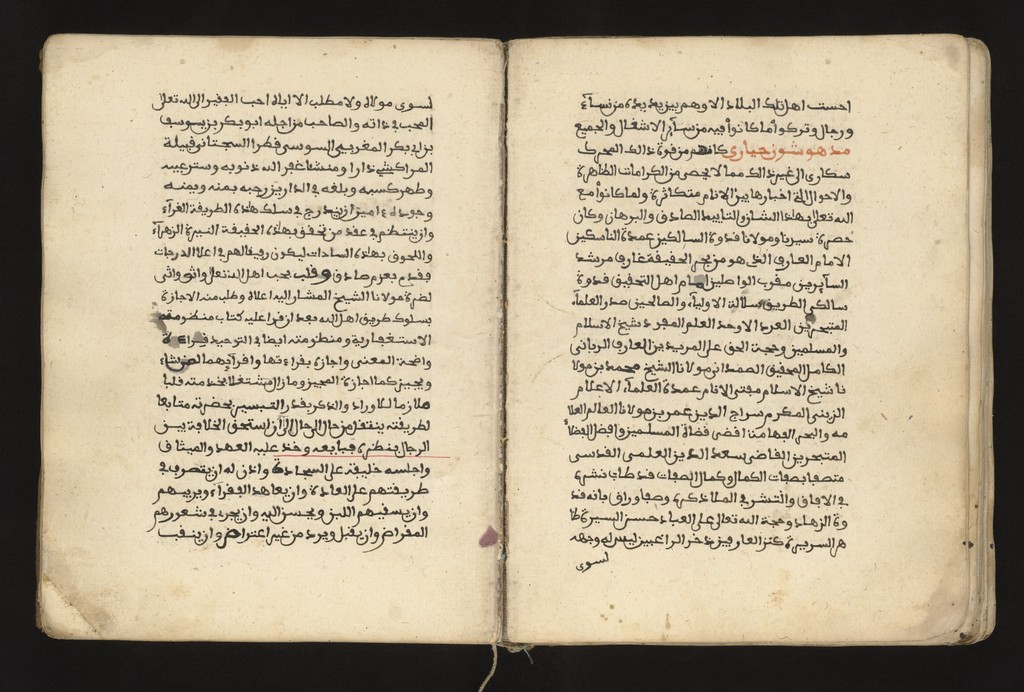 احست اهل تلك البلاد الا وهم بين يديه من نسآء
ورجال وتركوا ما كانوا فيه من سآئر الاشغال والجميع
مدهوشون حياري كانهم من قوة ذالك المحرك
سكارى الى غير ذالك مما لا يحصى من الكرامات الظاهرة
والاحوال التى اخبارها بين الانام متكاثرة ولما كانوا مع
الله تعلى بهذا الشان والتاييد الصادق والبرهان وكان
حضرة سيدنا ومولانا قدوة السالكين عمدة الناسكين
الامام العارف الذى هو من بحر الحقيقة غارف مرشد
السآيرين مقرب الواصلين امام اهل التحقيق قدوة
سالكى الطريق سلالة الاوليآء والصالحين صدر العلمآء
المتبحرين الفرد الاوحد العلم المفرد شيخ الاسلام
والمسلمين وحجة الحق على المريدين العارف الربانى
الكامل المحقق الصمدانى مولانا الشيخ محمد بن مولا
نا شيخ الاسلام مفتى الانام عمدة العلمآء الاعلام
الزينى المكرم سراج الدين عمر بن مولانا العالم العلا
مه والبحر الفهامة اقضى قضاة المسلمين وافضل الفضلآ
المتبحرين القاضى سعد الدين العلمى القدسى
متصفا بصفات الكمال وكمال الصفات قد طاب نشره
فى الافاق وانتشر فى الملا ذكره وصفا وراق بانه قد
وة الزهاد وحجة الله تعالى على العباد حسن السيرة طا
هر السريرة كنز العارفين ذخر الراغبين ليس له وجهه
لسوى
لسوى مولاه ولا مطلب الا اياه احب الفقير الى الله تعالى
المحب فى ذاته والصاحب من اجله ابو بكر بن يوسف
بن ابى بكر المغربى السوسى قطرا السجتانى قبيلة
المراكشى دارا ومنشا غفر الله ذنوبه وستر عيبه
وطهر كسبه وبلغه فى الدارين رحبه بمنه ويمنه
وجوده ءامين ان يندرج فى سلك هذه الطريقة الغرآء
وان ينتظم فى عقد من تحقق بهذه الحقيقة النيرة الزهرآء
واللحوق بهذه السادات ليكون رفيقا لهم فى اعلا الدرجات
فقدم بعزم صادق وقلب بحب اهل الله تعالى واثق واتى
لحضرة مولانا الشيخ المشار اليه اعلاه وطلب منه الاجازة
بسلوك طريق اهل الله بعد ان قرا عليه كتاب منظومته
الاستغفارية ومنظومته ايضا فى التوحيد قراءة
واضحة المعنى واجازه بقراءتها واقرآيهما لمن شاء
ويجيز كما اجازه المجيز وما زال مشتغلا بخدمته قلبا
ملازما للاوراد والذكر بقدر التيسير بحضرته متابعا
لطريقته ينتقل من حال الى حال الى ان استحق الخلافة بين
الرجال بنظره فبايعه وخذ عليه العهد والميثاق
واجلسه خليفة على السجادة واذن له ان يتصرف فى
طريقتهم على العادة وان يعاهد الفقرآء ويربيهم
وان يسقيهم اللبن ويحسن اليه وان يجره فى شعورهم
المقراض وان يقبل ويرد من غير اعتراض وان ينقب